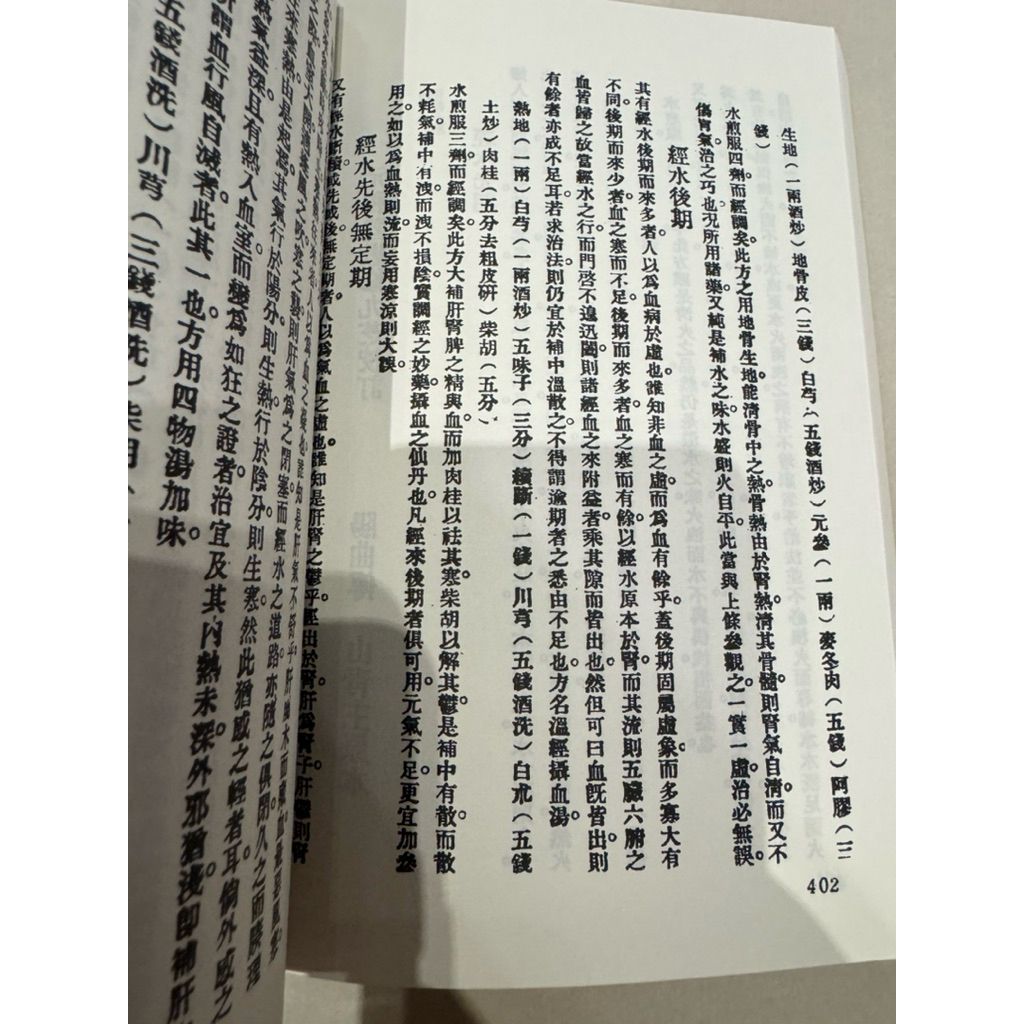 生地(一兩酒炒)地骨皮(三錢)白芍(五錢酒炒)元參(一兩)麥冬肉(五錢)阿膠(三
錢)
水煎服四劑而經調矣此方之用地骨生地能清骨中之熱骨熱由於腎熱清其骨髓則腎氣自清而又不
傷胃氣治之巧也況所用諸藥又純是補水之味水盛則火自平此當與上條參觀之一實一虛治必無誤。
經水後期
其有經水後期而來多者人以為血病於虛也誰知非血之虛而為血有餘乎蓋後期固屬虛象而多寡大有
不同後期而來少者血之寒而不足。後期而來多者血之寒而有餘。以經水原本於腎而其流則五臟六腑之
血皆歸之故當經水之行而門啓不遑迅闔則諸經血之來附益者乘其隙而皆出也。然但可曰血旣皆出則
有餘者亦成不足耳若求治法則仍宜於補中溫散之不得謂逾期者之悉由不足也。方名溫經攝血湯。
熟地(一兩)白芍(一兩酒炒)五味子(三分)續斷(一錢)川芎(五錢酒洗)白朮(五錢
土炒)肉桂(五分去粗皮硏)柴胡(五分)
水煎服三劑而經調矣。此方大補肝腎脾之精與血而加肉桂以祛其寒柴胡以解其鬱是補中有散而散
不耗氣補中有洩而洩不損陰實調經之妙藥攝血之仙丹也凡經來後期者俱可用。元氣不足更宜加參
用之如以為血熱則流而妄用寒涼則大誤。
經水先後無定期
又有經水斷續或先或後無定期者人以為氣血之虛也誰知是肝腎之鬱乎經出於腎肝為腎子肝鬱則腎
熱氣益深且有熱入血室而變為如狂之證者治宜及其內熱未深外邪猶淺即補肝
所謂血行風自滅者此其一也方用四物湯加味。
五錢酒洗)川芎(三錢酒洗)柴胡
402